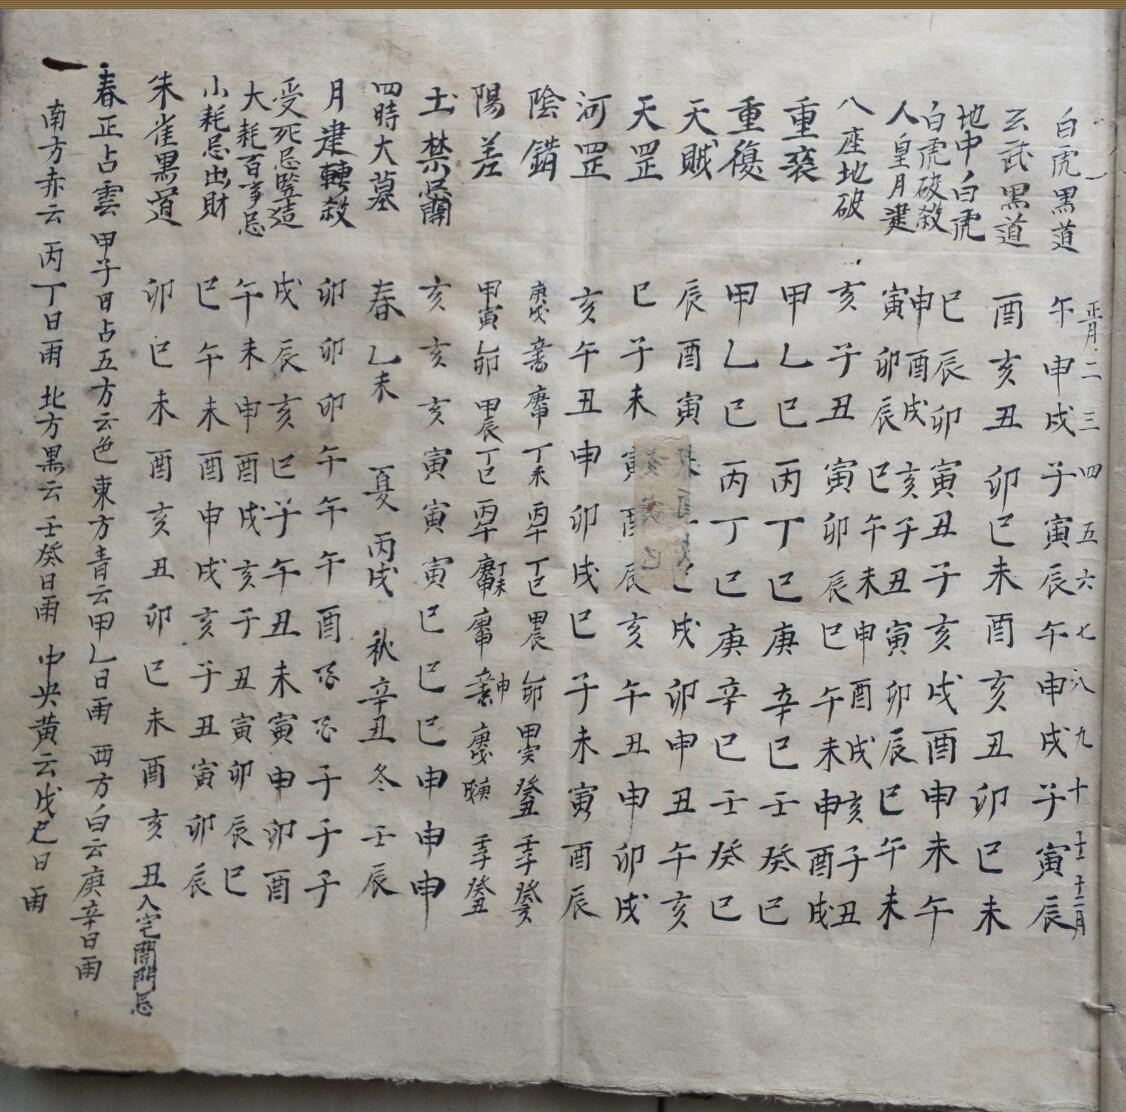 正月 二 三 四 五 六 七 八 九 十 十一 十二月
白虎黑道 午申戌子寅辰午申戌子寅辰
玄武黑道 酉亥丑卯巳未酉亥丑卯巳未
地中白虎 巳辰卯寅丑子亥戌酉申未午
白虎破殺 申酉戌亥子丑寅卯辰巳午未
人皇月建 寅卯辰巳午未申酉戌亥子丑
八座地破 亥子丑寅卯辰巳午未申酉戌
重喪 甲乙巳丙丁巳庚辛巳壬癸巳
重復 甲乙巳丙丁巳庚辛巳壬癸巳
天賊 辰酉寅 戌卯申丑午亥
天罡 巳子未寅酉辰亥午丑申卯戌
河罡 亥午丑申卯戌巳子未寅酉辰
陰錯 庚戌 辛酉 庚申 丁未 丙午 丁巳 甲辰 乙卯 甲寅 癸丑 壬子 癸亥
陽差 甲寅 乙卯 甲辰 丁巳 丙午 丁未 庚申 辛酉 庚戌 壬子 癸丑
土禁忌開 亥亥亥寅寅寅巳巳巳申申申
四時大墓 春乙未 夏丙戌 秋辛丑 冬壬辰
月建轉殺 卯卯卯午午午酉酉酉子子子
受死忌竪造 戌辰亥巳子午丑未寅申卯酉
大耗百事忌 午未申酉戌亥子丑寅卯辰巳
小耗忌出財 巳午未酉申戌亥子丑寅卯辰
朱雀黑道 卯巳未酉亥丑卯巳未酉亥丑入宅開門忌
春正占雲 甲子日占五方云色 東方青云甲乙日雨 西方白云庚辛日雨
南方赤云 丙丁日雨 北方黑云壬癸日雨 中央黄云戊己日雨